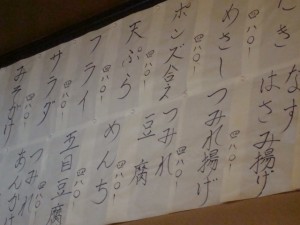 にき
めさし
ポンズ合え
四八〇
天ぷら
四八〇
フライ
四八〇
サラダ
四八〇
みそかけ
なすはさみ揚げ
つみれ揚げ
つみれ
豆腐
めんち
四八〇
五目豆腐
四八〇
つみれ
あんかけ